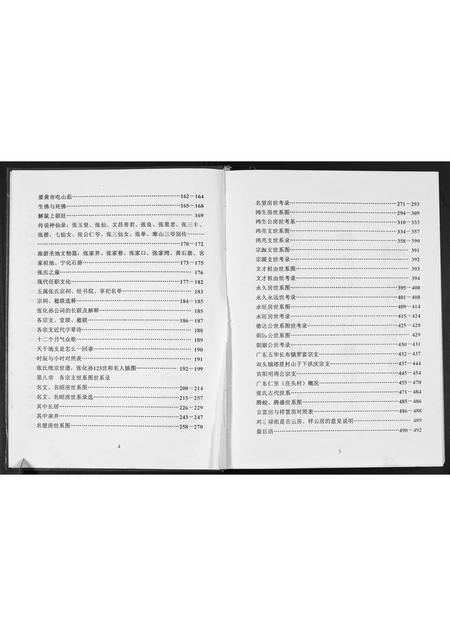 要黄帝吃山茹……162—164
生佛与死佛……165—168
解鼠上朝廷……169
传说神仙录:张玉皇、张仙、文昌帝君、张良、张果老、张三丰、
张雅、七仙女、张公仁爷、张三仙女、张单、寒山三爷别传……
……170—172
旅游圣地文物篇:张家界、张家巷、张家口、张家湾、黄石寨、客
家祖地、宁化石壁……173—175
张氏之最……176
现代任职文化……177—182
五属张氏宗祠、经书院、享祀名单……183
宗祠、楹联选释……184—185
张化孙公词的长联及解释……185
各宗支、堂联、楹联……186—187
各宗支近代字辈诗……188
十二个月气众歌……189
天干地支是怎么一回事……190
时辰与小时对照表……191
张氏统宗世谱、张化孙123世和名人插图……192—199
第八章 各宗支世系图世系录
名文、名昭房世系图……200—214
名文、名昭房世系录选……215—257
其中长居……226—229
其中泉井……243—247
名望房世系图……258—270
4
名望房世考录……271—293
鸿生房世系图……294—309
鸿生公房世考系……310—333
鸿亮支世系图……334—357
鸿亮支世系录……358—390
宗源支世系图……391
宗源支世考录……392
文才祖由世系图……393
文才祖由世考录……394
永久房世系图……395—400
永久永远世考录……401—408
永旺房世系图……409—414
永旺房世考录……415—424
德达公世系图世考录……425—429
朝沄公世系图……430
朝源公世考录……431
广东五华长布镇罗富宗支……432—437
双头镇塔星村山子下洪庆宗支……438—444
宾阳明周公宗支……445—454
广东仁里(庄头村)概况……455—470
张氏古代世系……471—484
腾蛟、腾盛世系图……485—486
吉云房与祥云房对照表……486—488
对三禄祖是吉云房、祥云房的意见说明……489
最后语……490—492
5